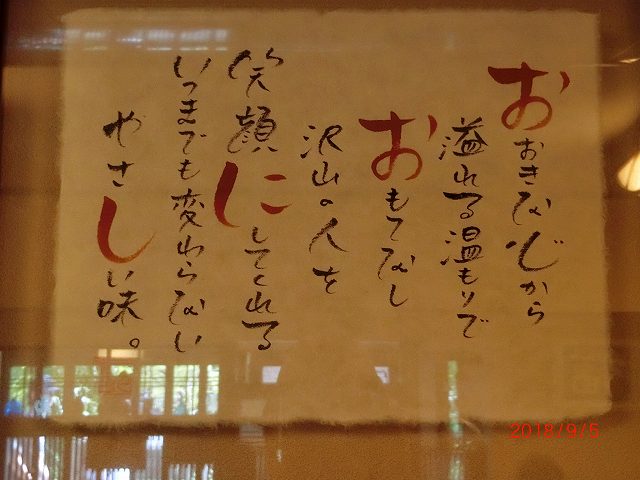 おおきな心から
溢れる温もりで
おもてなし
沢山の人を
笑顔にしてくれる
いつまでも変わらない
やさしい味。
2018/9/5